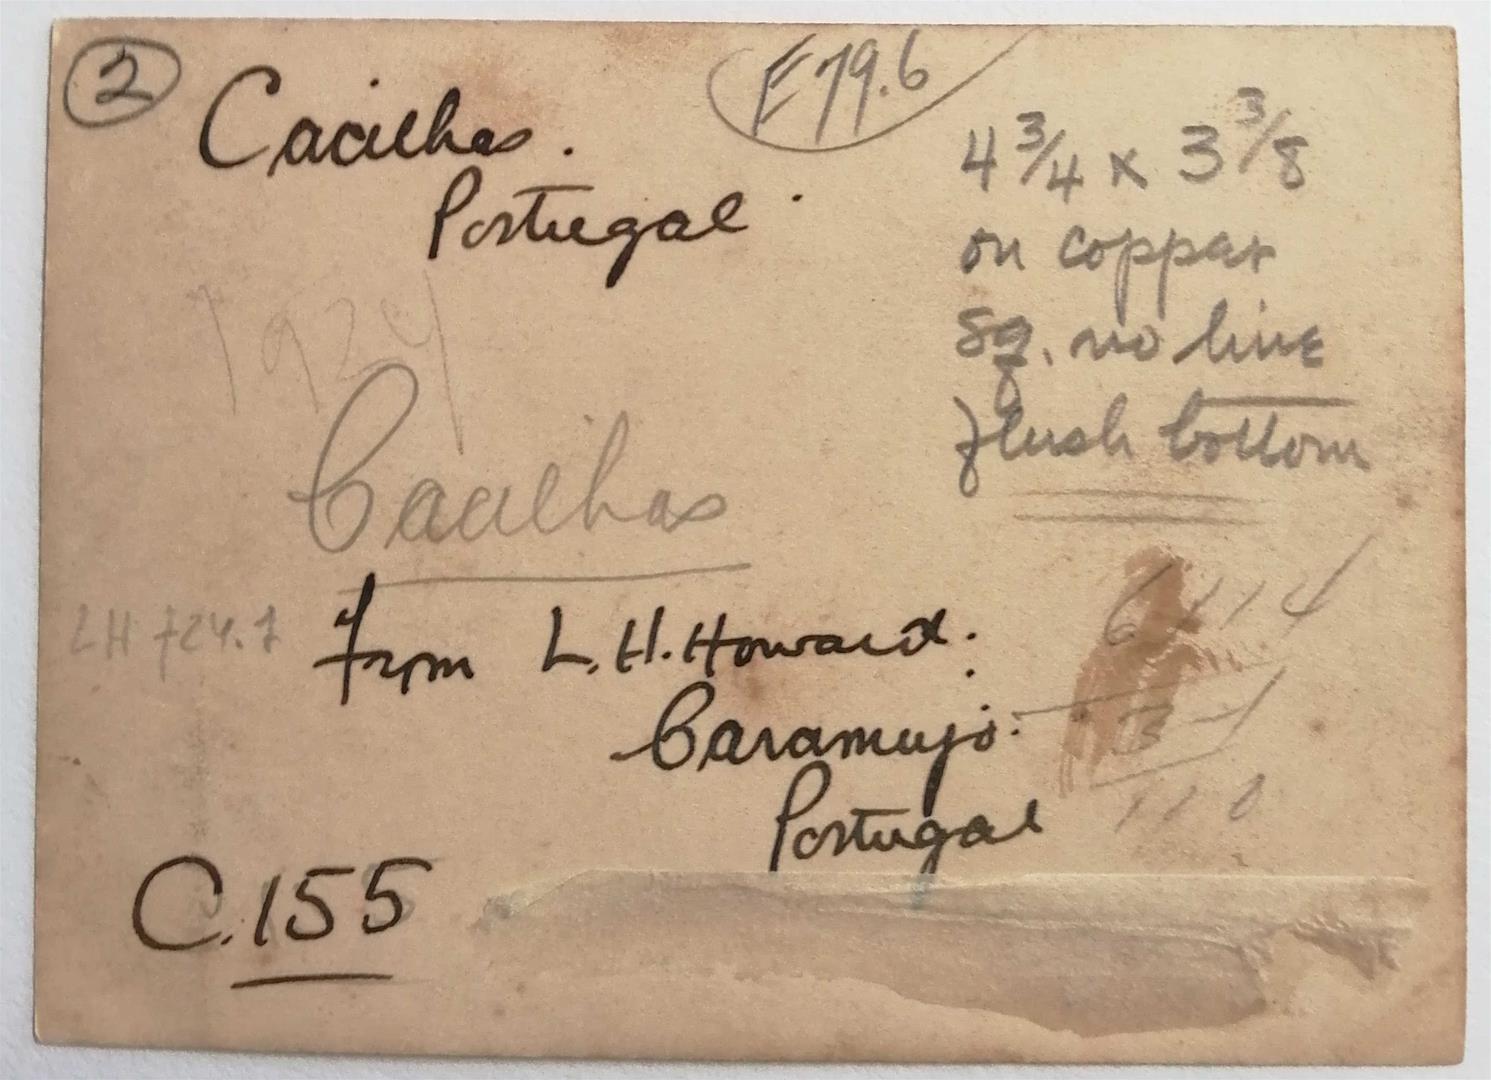 2
Cacilhas.
Portugal.
E79.6
4 3/4 x 3 3/8
on copper
sq. no line
flush bottom
1924
Cacilhas
from L.H. Howard.
Caramujo.
Portugal
C.155